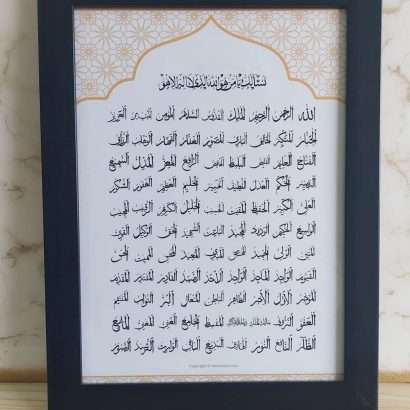 نسئلك يا من هو الله الذي لا إله إلا هو
الله الرحمن الرحيم الملك القدوس السلام المؤمن المهيمن العزيز
الجبار المتكبر الخالق البارئ المصور الغفار القهار الوهاب الرزاق
الفتاح العليم القابض الباسط الخافض الرافع المعز المذل السميع
البصير الحكم العدل اللطيف الخبير الحليم العظيم الغفور الشكور
العلي الكبير الحفيظ المقيت الحسيب الجليل الكريم الرقيب المجيب
الواسع الحكيم الودود المجيد الباعث الشهيد الحق الوكيل القوي
المتين الولي الحميد المحصي المبدئ المعيد المحيي المميت الحي
القيوم الواجد الماجد الواحد الأحد الصمد القادر المقتدر المقدم
المؤخر الأول الآخر الظاهر الباطن المتعال البر التواب المنتقم
العفو الرؤوف مالك الملك ذو الجلال والإكرام المقسط الجامع الغني المغني المانع
الضار النافع النور الهادي البديع الباقي الوارث الرشيد الصبور